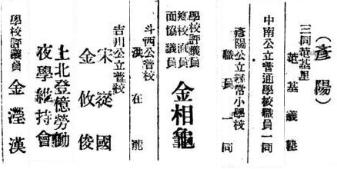 (彥陽)
三同范基星
范基義塾
中南公立普通學校職員一同
彥陽公立尋常小學校
職員一同
學校評議員
面協議員
金相龜
斗西公普校
吉川公立普校
金攸俊
宋從國
土北登億勞働
夜學維持會
學校評議員
金瀅漢